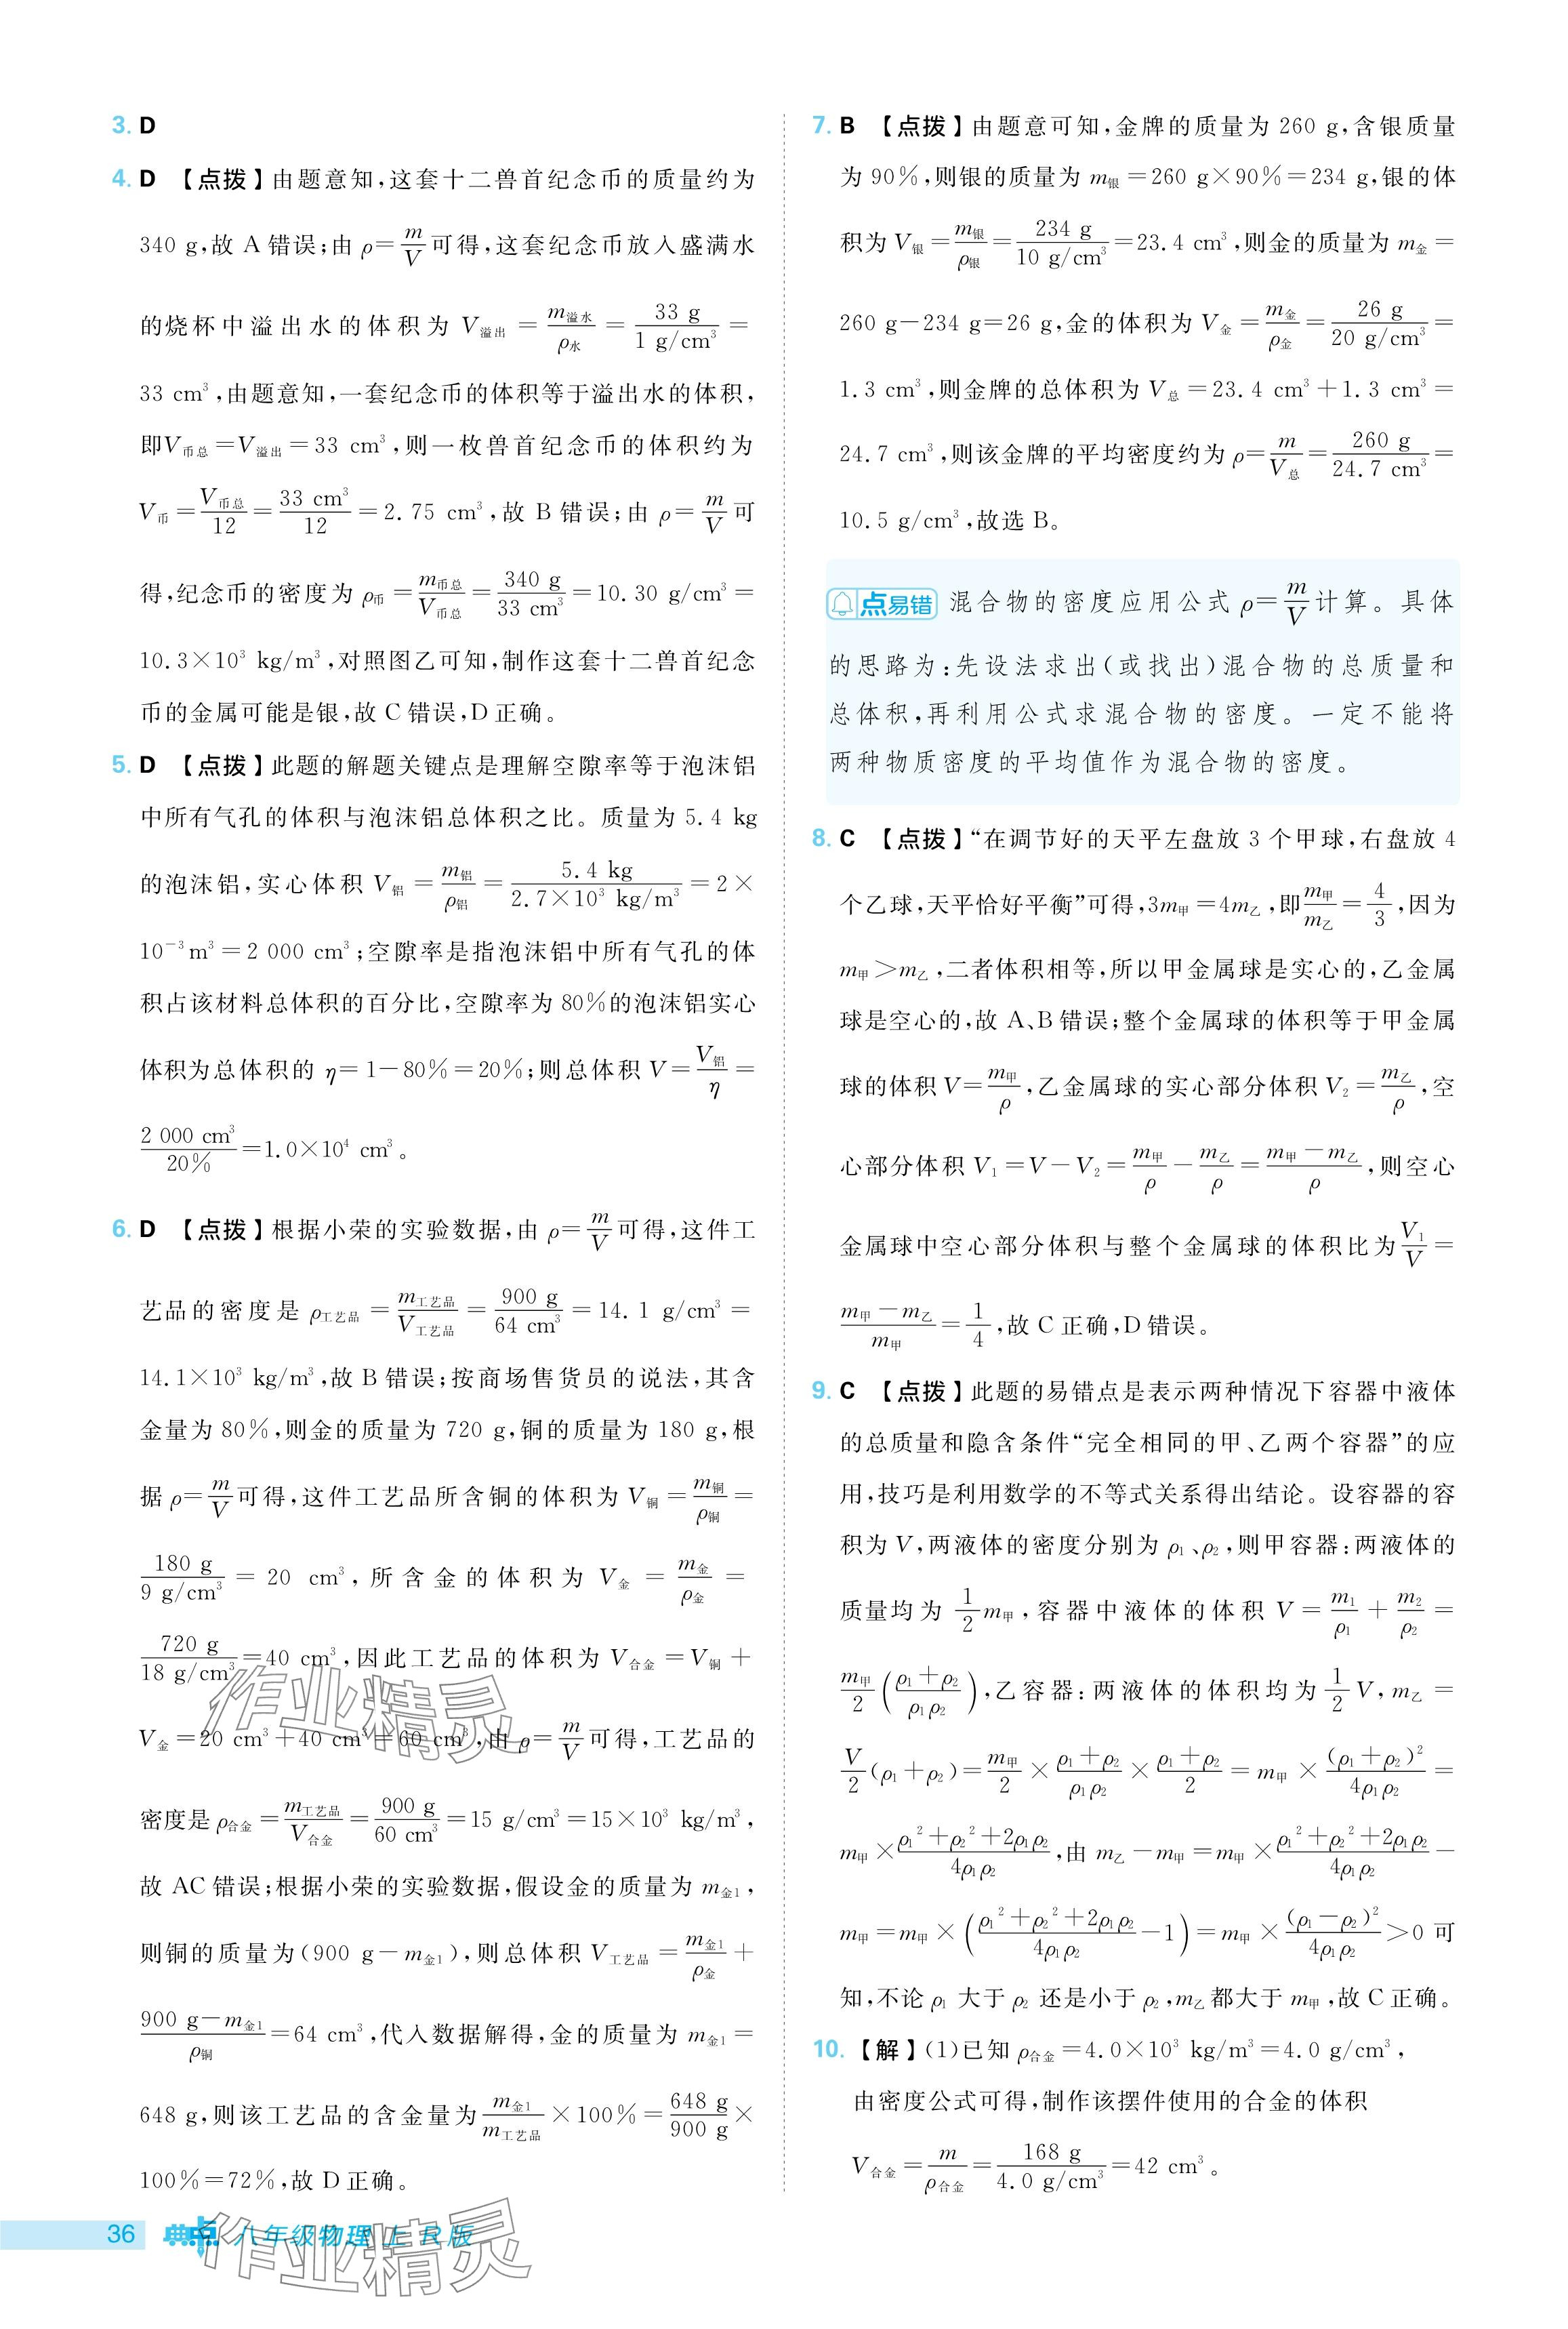 3. D
4. D 【点拨】由题意知,这套十二兽首纪念币的质量约为
340 g,故 A 错误;由 ρ=m/V可得,这套纪念币放入盛满水
的烧杯中溢出水的体积为 V溢出=m溢水/ρ水=33 g/1 g/cm³=
33 cm³,由题意知,一套纪念币的体积等于溢出水的体积,
即V币总=V溢出=33 cm³,则一枚兽首纪念币的体积约为
V币=V币总/12=33 cm³/12=2.75 cm³,故 B 错误;由 ρ=m/V可
得,纪念币的密度为 ρ币=m币总/V币总=340 g/33 cm³=10.30 g/cm³=
10.3×10³ kg/m³,对照图乙可知,制作这套十二兽首纪念
币的金属可能是银,故 C 错误,D 正确。
5. D 【点拨】此题的解题关键点是理解空隙率等于泡沫铝
中所有气孔的体积与泡沫铝总体积之比。质量为 5.4 kg
的泡沫铝,实心体积 V铝=m铝/ρ铝=5.4 kg/2.7×10³ kg/m³=2×
10⁻³m³=2 000 cm³;空隙率是指泡沫铝中所有气孔的体
积占该材料总体积的百分比,空隙率为 80%的泡沫铝实心
体积为总体积的 η=1-80%=20%;则总体积 V=V铝/η=
2 000 cm³/20%=1.0×10⁴ cm³。
6. D 【点拨】根据小荣的实验数据,由 ρ=m/V可得,这件工
艺品的密度是 ρ工艺品=m工艺品/V工艺品=900 g/64 cm³=14.1 g/cm³=
14.1×10³ kg/m³,故 B 错误;按商场售货员的说法,其含
金量为 80%,则金的质量为 720 g,铜的质量为 180 g,根
据 ρ=m/V可得,这件工艺品所含铜的体积为 V铜=m铜/ρ铜=
180 g/9 g/cm³=20 cm³,所含金的体积为 V金=m金/ρ金=
720 g/18 g/cm³=40 cm³,因此工艺品的体积为 V合金=V铜+
V金=20 cm³+40 cm³=60 cm³,由 ρ=m/V可得,工艺品的
密度是 ρ合金=m工艺品/V合金=900 g/60 cm³=15 g/cm³=15×10³ kg/m³,
故 AC 错误;根据小荣的实验数据,假设金的质量为 m金1,
则铜的质量为(900 g-m金1),则总体积 V工艺品=m金1/ρ金+
900 g-m金1/ρ铜=64 cm³,代入数据解得,金的质量为 m金1=
648 g,则该工艺品的含金量为m金1/m工艺品×100%=648 g/900 g×
100%=72%,故 D 正确。
7. B 【点拨】由题意可知,金牌的质量为 260 g,含银质量
为 90%,则银的质量为 m银=260 g×90%=234 g,银的体
积为 V银=m银/ρ银=234 g/10 g/cm³=23.4 cm³,则金的质量为 m金=
260 g-234 g=26 g,金的体积为 V金=m金/ρ金=26 g/20 g/cm³=
1.3 cm³,则金牌的总体积为 V总=23.4 cm³+1.3 cm³=
24.7 cm³,则该金牌的平均密度约为 ρ=m/V总=260 g/24.7 cm³=
10.5 g/cm³,故选 B。
点易错 混合物的密度应用公式 ρ=m/V计算。具体
的思路为:先设法求出(或找出)混合物的总质量和
总体积,再利用公式求混合物的密度。一定不能将
两种物质密度的平均值作为混合物的密度。
8. C 【点拨】“在调节好的天平左盘放 3 个甲球,右盘放 4
个乙球,天平恰好平衡”可得,3m甲=4m乙,即m甲/m乙=4/3,因为
m甲>m乙,二者体积相等,所以甲金属球是实心的,乙金属
球是空心的,故 A、B 错误;整个金属球的体积等于甲金属
球的体积 V=m甲/ρ,乙金属球的实心部分体积 V₂=m乙/ρ,空
心部分体积 V₁=V-V₂=m甲/ρ-m乙/ρ=m甲-m乙/ρ,则空心
金属球中空心部分体积与整个金属球的体积比为V₁/V=
m甲-m乙/m甲=1/4,故 C 正确,D 错误。
9. C 【点拨】此题的易错点是表示两种情况下容器中液体
的总质量和隐含条件“完全相同的甲、乙两个容器”的应
用,技巧是利用数学的不等式关系得出结论。设容器的容
积为 V,两液体的密度分别为 ρ₁、ρ₂,则甲容器:两液体的
质量均为 1/2m甲,容器中液体的体积 V=m₁/ρ₁+m₂/ρ₂=
m甲/2(ρ₁+ρ₂/ρ₁ρ₂),乙容器:两液体的体积均为1/2V,m乙=
V/2(ρ₁+ρ₂)=m甲/2×ρ₁+ρ₂/ρ₁ρ₂×ρ₁+ρ₂/2=m甲×(ρ₁+ρ₂)²/4ρ₁ρ₂=
m甲×ρ₁²+ρ₂²+2ρ₁ρ₂/4ρ₁ρ₂,由 m乙-m甲=m甲×ρ₁²+ρ₂²+2ρ₁ρ₂/4ρ₁ρ₂-
m甲=m甲×(ρ₁²+ρ₂²+2ρ₁ρ₂/4ρ₁ρ₂-1)=m甲×(ρ₁-ρ₂)²/4ρ₁ρ₂>0 可
知,不论 ρ₁ 大于 ρ₂ 还是小于 ρ₂,m乙都大于 m甲,故 C 正确。
10. 【解】(1)已知 ρ合金=4.0×10³ kg/m³=4.0 g/cm³,
由密度公式可得,制作该摆件使用的合金的体积
V合金=m/ρ合金=168 g/4.0 g/cm³=42 cm³。
作业精灵
36 典点 八年级物理 上 R版
作业精灵